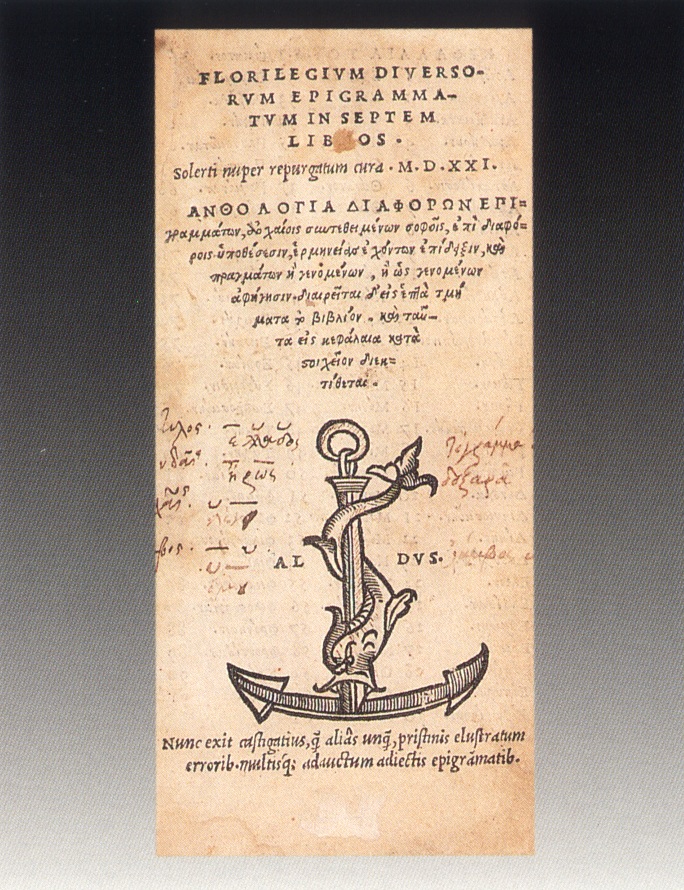 FLORILEGIVM DIVERSO-
RVM EPIGRAMMA-
TVM IN SEPTEM
LIB OS.
Solerti nuper repurgatum cura. M. D. XXI.
ΑΝΘΟΛΟΓΙΑ ΔΙΑΦΟΡΩΝ ΕΠΙ=
γραμμάτων, ἀρχαίοις συντεθειμένων σοφοῖς, ἐπὶ διαφό-
ροις ὑποθέσεσιν, ἑρμηνείας ἐχόντων ἐπίδειξιν, καὶ
πραγμάτων ἢ γενομένων, ἢ ὡς γενομένων
ἀφήγησιν. διαιρεῖται δ' εἰς ἑπτὰ τμή
ματα τὸ βιβλίον. καὶ ταῦ-
τα εἰς κεφάλαια κατὰ
στοιχεῖον διεκ=
τίθεται.
ἥρως
AL DVS.
Nunc exit castigatius, q̃ aliàs unq̃, pristinis elustratum
errorib. multisq; adauctum adiectis epigrāmatib.